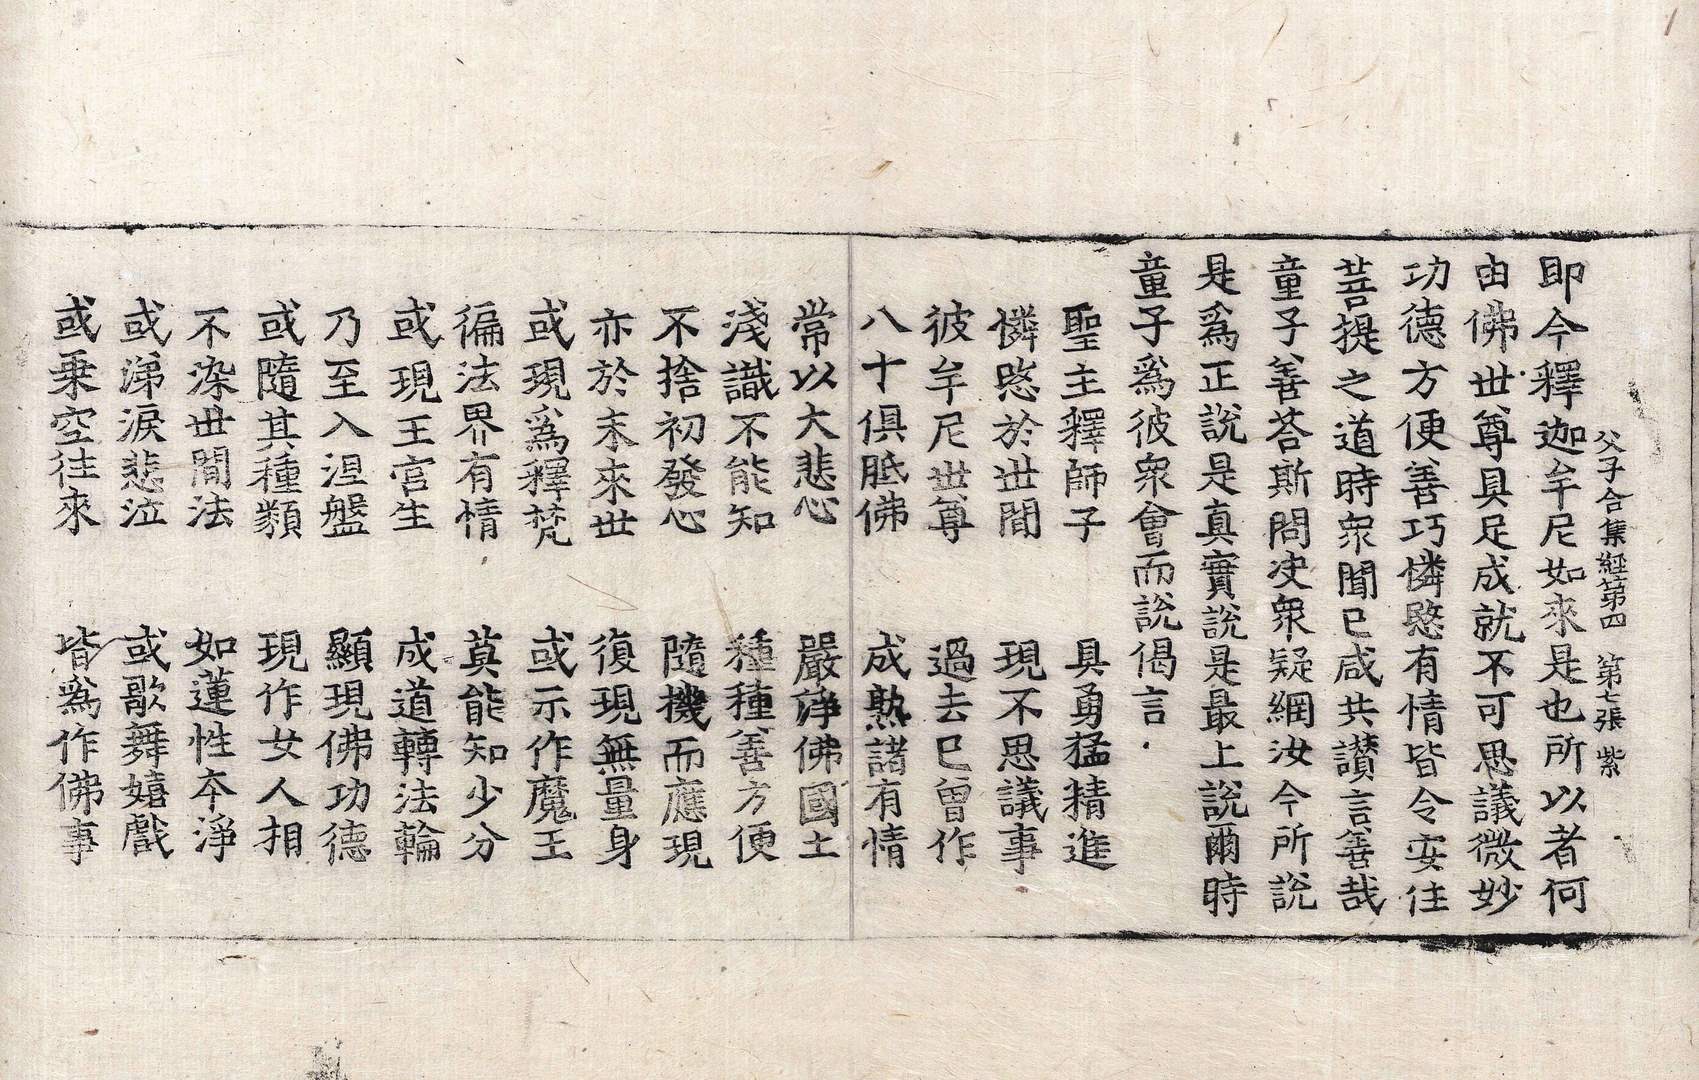 父子合集經第四　第七張　紫
即今釋迦牟尼如來是也所以者何
由佛世尊具足成就不可思議微妙
功德方便善巧憐愍有情皆令安住
菩提之道時衆聞已咸共讃言善哉
童子善荅斯問决衆疑網汝今所說
是爲正說是真實說是最上說爾時
童子爲彼衆會而說偈言
聖主釋師子　具勇猛精進
憐愍於世間　現不思議事
彼牟尼世尊　過去已曾作
八十俱胝佛　成熟諸有情
常以大悲心　嚴淨佛國土
淺識不能知　種種善方便
不捨初發心　隨機而應現
亦於末來世　復現無量身
或現爲釋梵　或示作魔王
徧法界有情　莫能知少分
或現王宫生　成道轉法輪
乃至入涅盤　顯現佛功德
或隨其種類　現作女人相
不染世間法　如蓮性本淨
或涕淚悲泣　或歌舞嬉戲
或乗空往來　皆爲作佛事